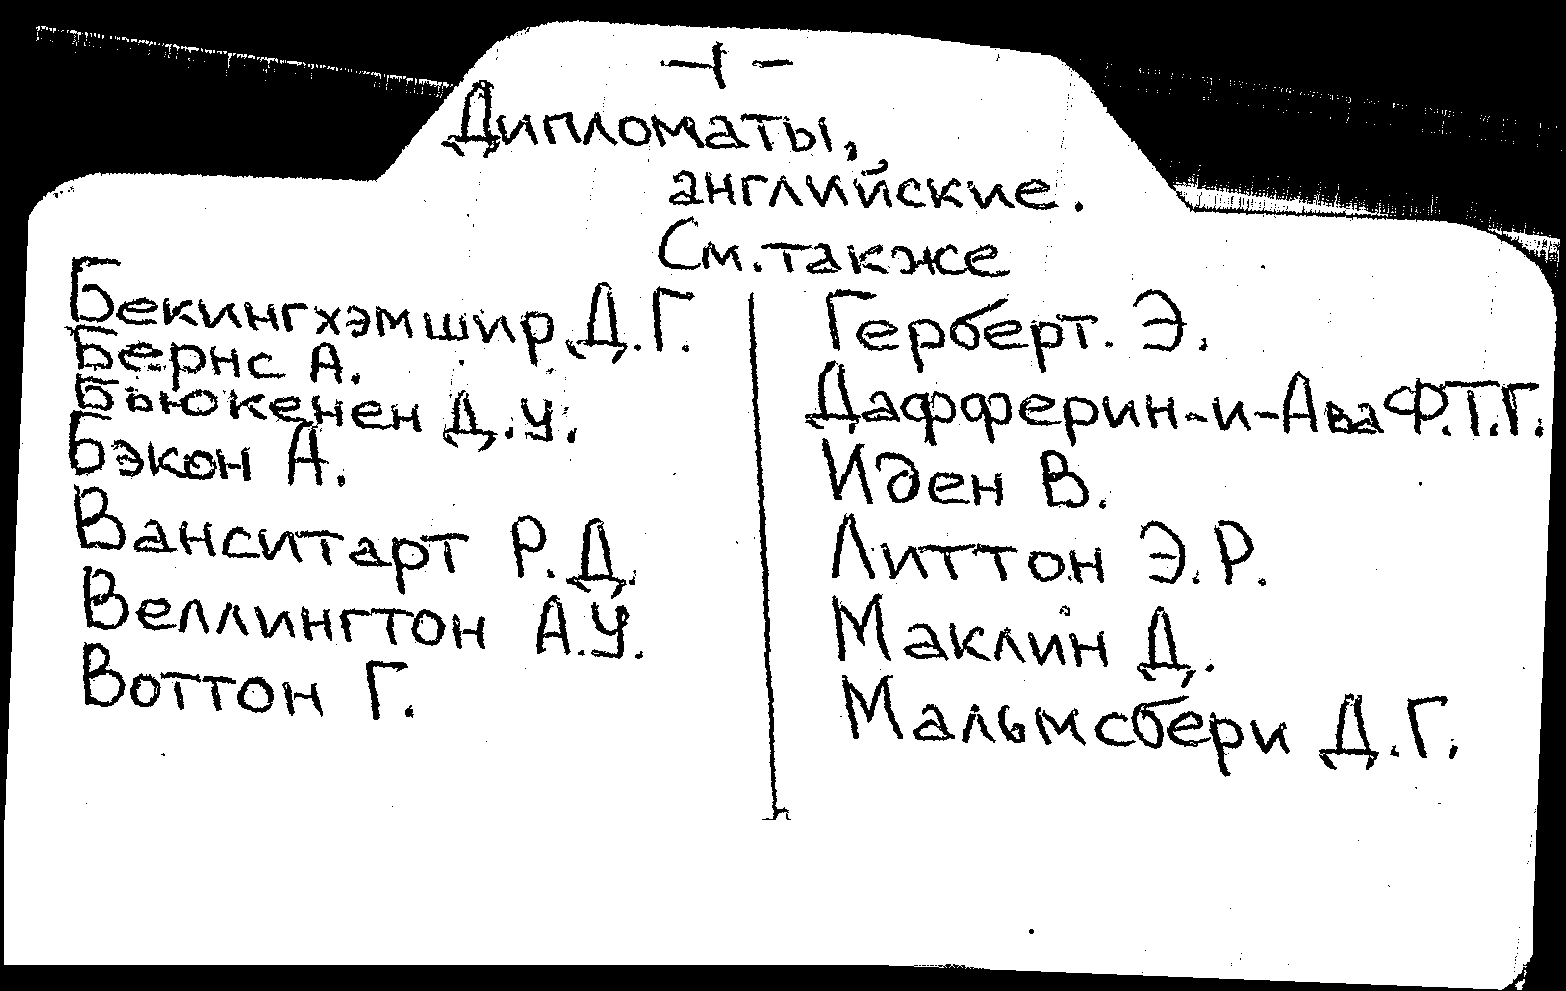 -I-
Дипломаты,
английские.
См. также
Бекингхэмшир Д.Г.
Бернс А.
Бьюкенен Д.У.
Бэкон А.
Ванситарт Р.Д.
Веллингтон А.У.
Воттон Г.
Герберт. Э.
Дафферин-и-Ава Ф.Т.Г.
Иден В.
Литтон Э.Р.
Маклин Д.
Мальмсбери Д.Г.